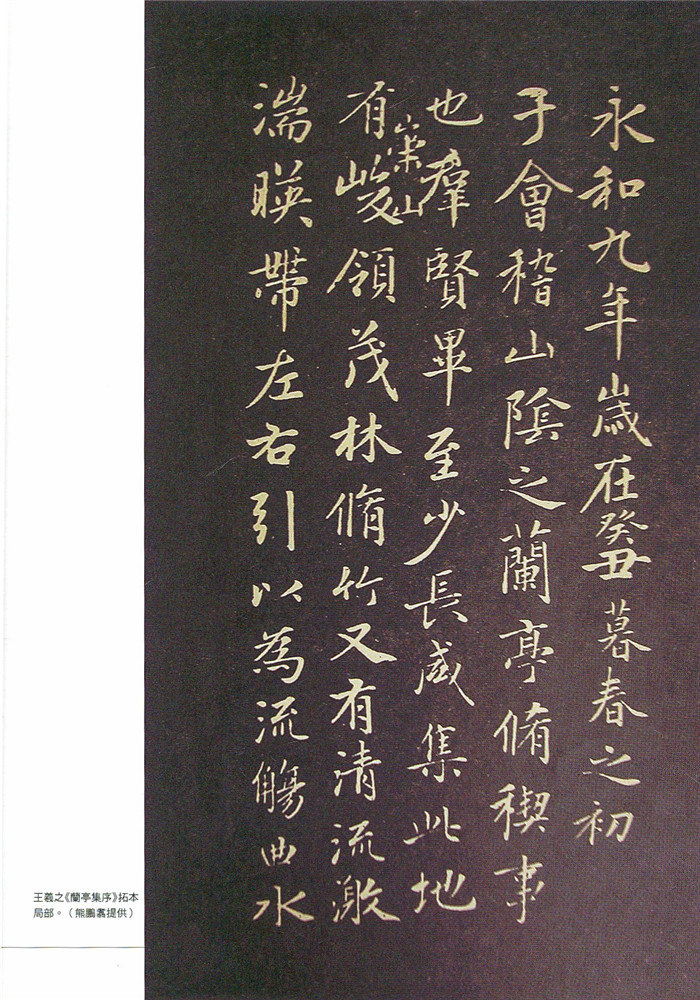 永和九年歲在癸丑暮春之初
于會稽山陰之蘭亭脩稧事
也羣賢畢至少長咸集此地
有崇山峻領茂林脩竹又有清流激
湍暎帶左右引以為流觴曲水
王羲之《蘭亭集序》拓本
局部。（熊鵬翥提供）